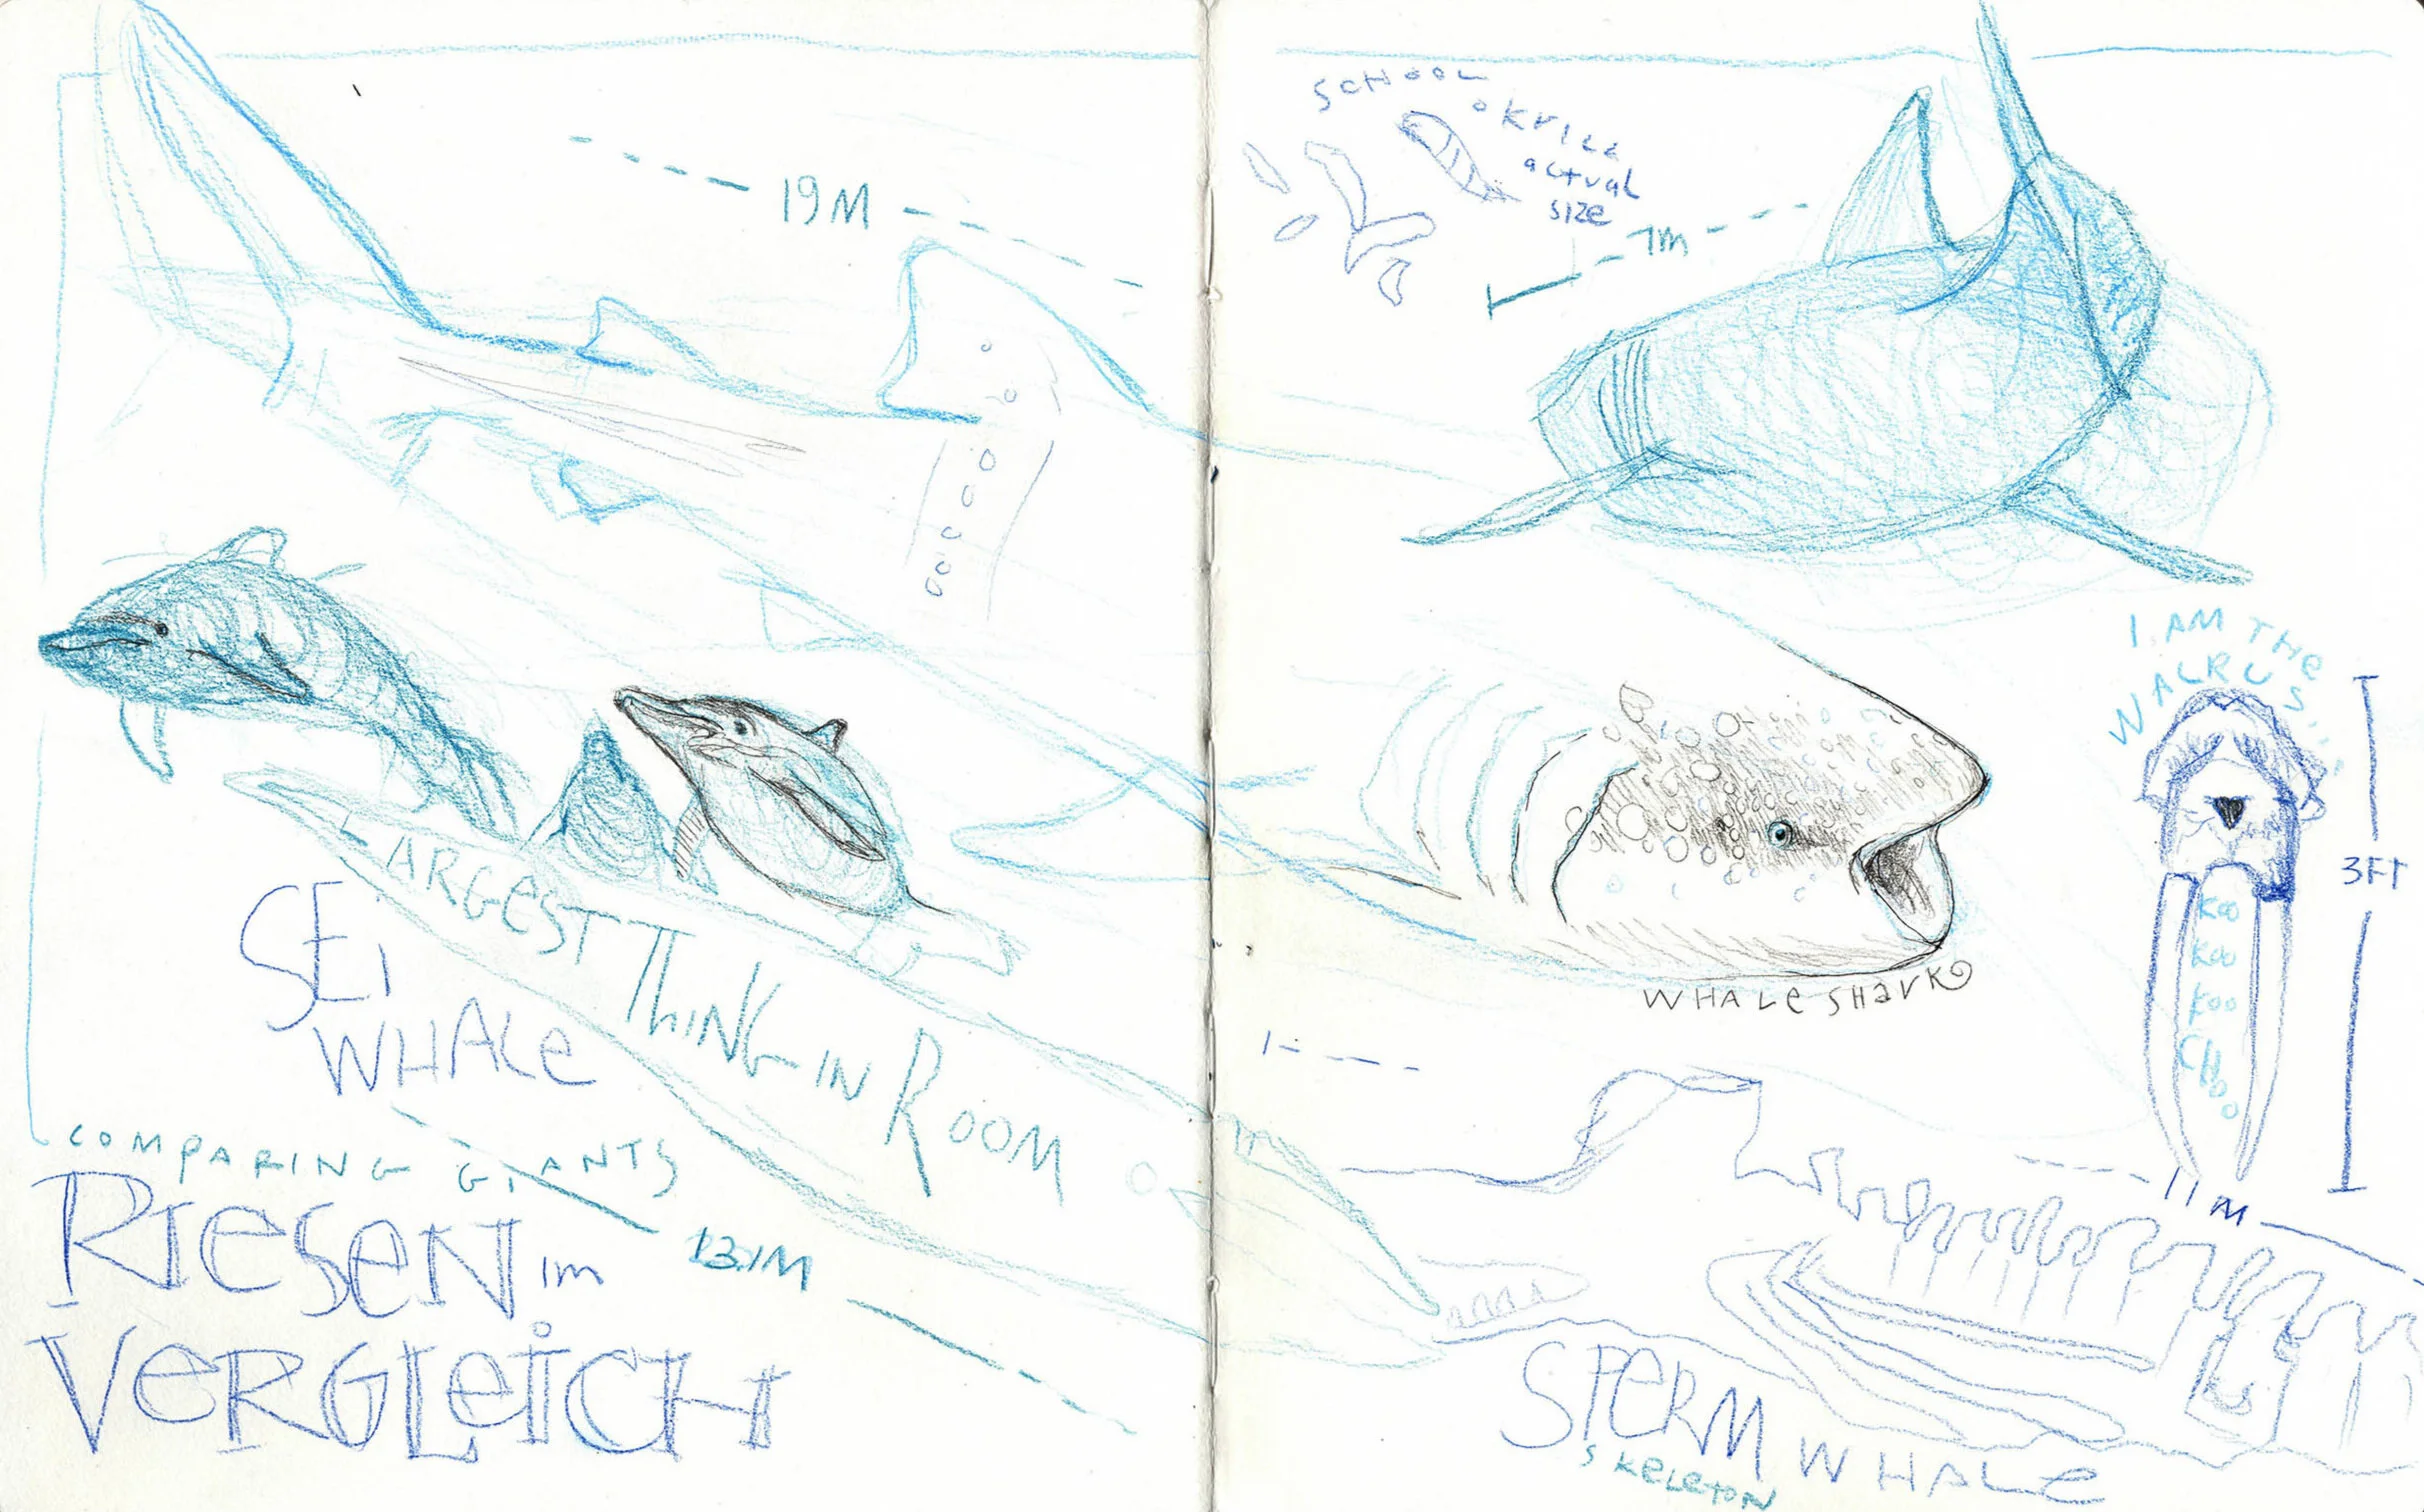 19M
SEi
WHALe
LARGEST THiNG IN ROOM
COMPARING GiANTS
RIESEN im
VERGLEiCH
13.1M
SCHOOL
o KRILL
actual
size
7m
I AM THe
WALRUS...
3FT
Koo
Koo
Koo
CHOO
WHALe SHark
11M
SPERM WHALe
SKeLeTON